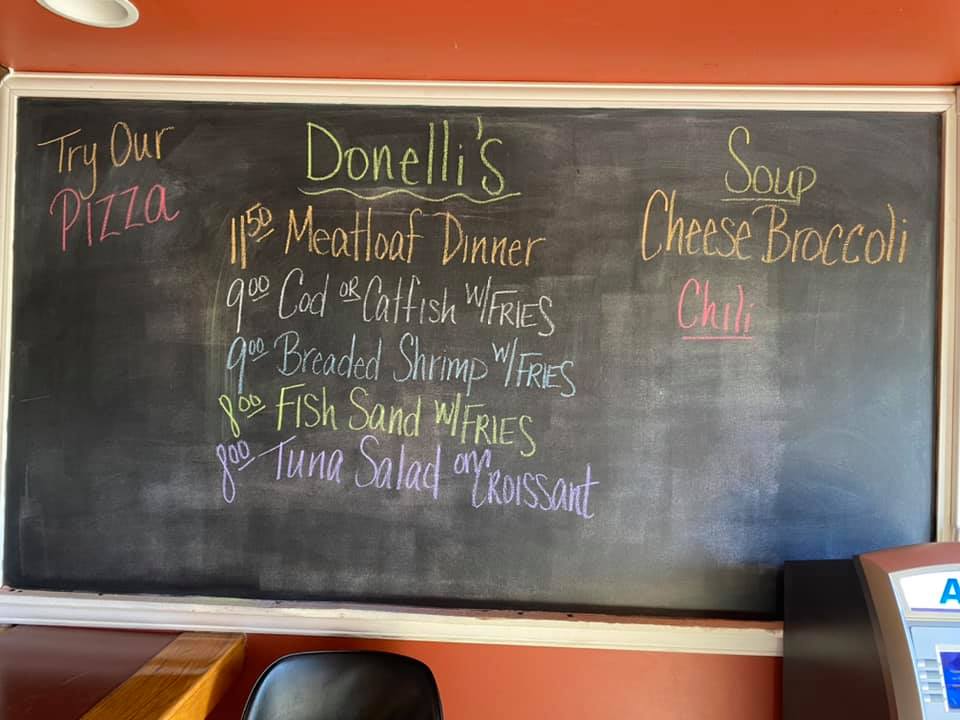 Try Our
PIZZA
Donelli's
11.50 Meatloaf Dinner
9.00 Cod OR Catfish W/FRIES
9.00 Breaded Shrimp W/FRIES
8.00 FISh Sand W/FRIES
8.00 Tuna Salad on CROISSant
Soup
Cheese Broccoli
Chili
A